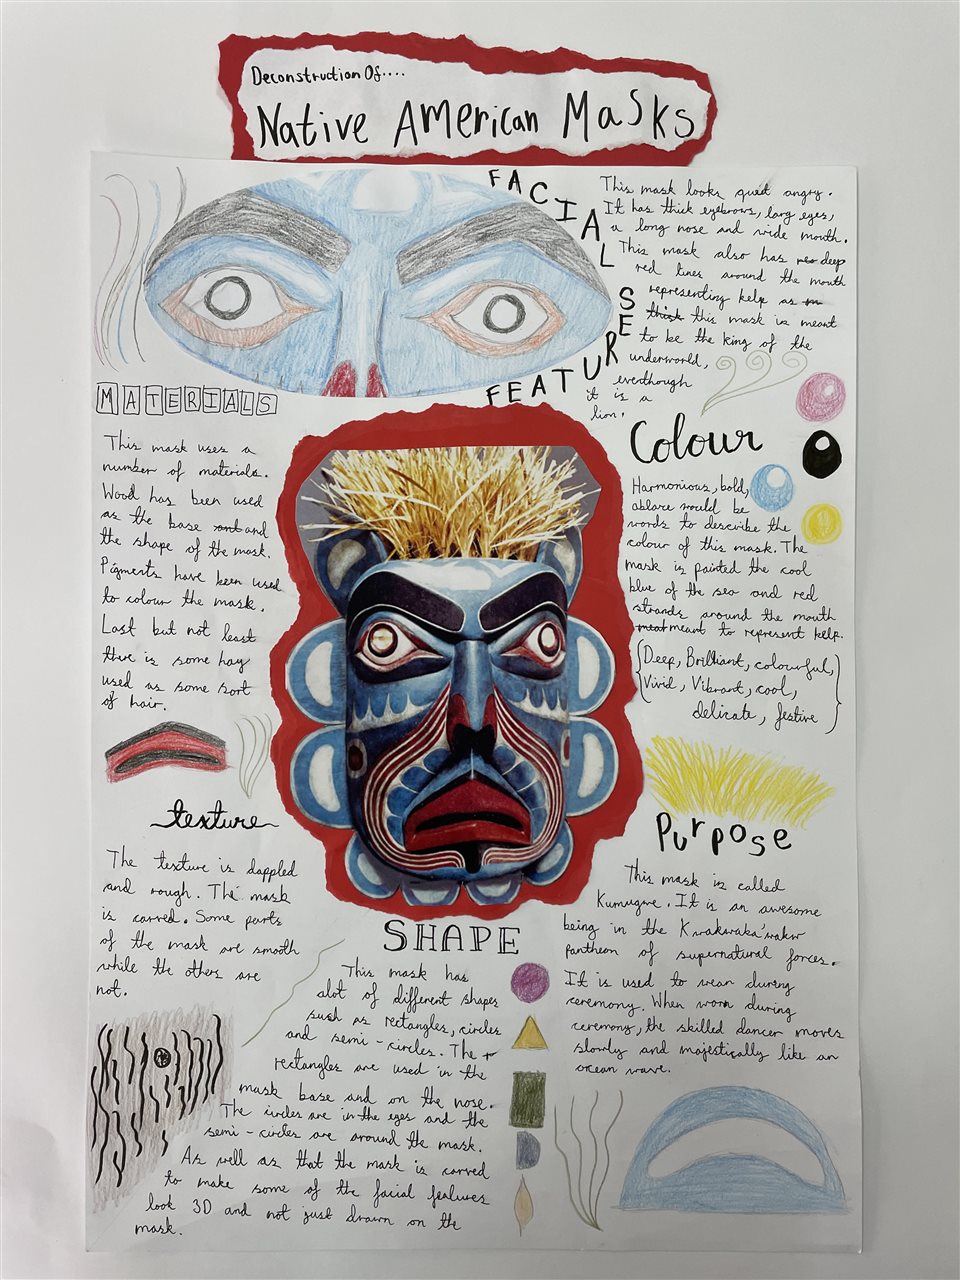 Deconstruction Of....
Native American Masks
FACIAL FEATURES
This mask looks quiet angry.
It has thick eyebrows, larg eyes,
a long nose and wide mouth.
This mask also has deep
red lines around the mouth
representing kelp as
thick this mask is meant
to be the king of the
underworld,
eventhough
it is a
lion.
MATERIALS
This mask uses a
number of materials.
Wood has been used
as the base and and
the shape of the mask.
Pigments have been used
to colour the mask.
Last but not least
there is some hay
used as some sort
of hair.
Colour
Harmonious, bold,
ablaze would be
words to describe the
colour of this mask. The
mask is painted the cool
blue of the sea and red
strands around the mouth
meat meant to represent kelp.
{Deep, Brilliant, colourful,
Vivid, Vibrant, cool,
delicate, festive}
texture
The texture is dappled
and rough. The mask
is carved. Some parts
of the mask are smooth
while the others are
not.
SHAPE
This mask has
alot of different shapes
such as rectangles, circles
and semi-circles. The r
rectangles are used in the
mask base and on the nose.
The circles are in the eyes and the
semi-circles are around the mask.
As well as that the mask is carved
to make some of the facial features
look 3D and not just drawn on the
mask.
Purpose
This mask is called
Kumugwe. It is an awesome
being in the Kwakwaka'wakw
pantheon of supernatural forces.
It is used to wear during
ceremony. When worn during
ceremony, the skilled dancer moves
slowly and majestically like an
ocean wave.